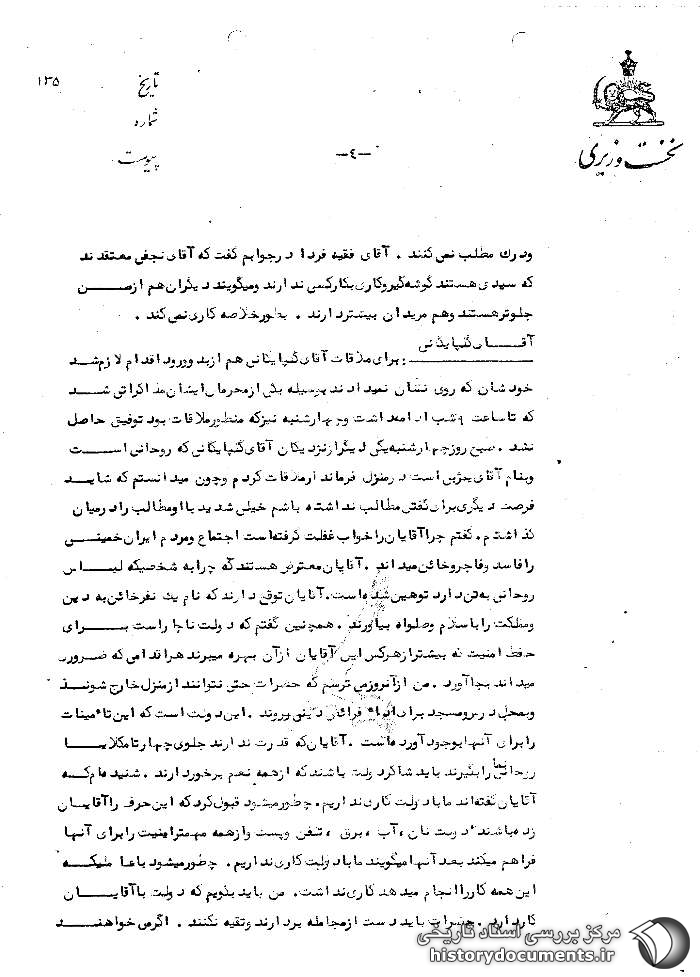 ۱۳۵
تاریخ
شماره
پیوست
نخست وزیری
-٤-
ودرك مطلب نمی کنند . آقای فقیه فردا درجوابم گفت که آقای نجفی معتقدند
که سیدی هستند گوشه گیروکاری بکارکسی ندارند ومیگویند دیگران هم ازمن
جلوترهستند وهم مریدان بیشتردارند . بطورخلاصه کاری نمی کند .
آقای گلپایگانی
: برای ملاقات آقای گلپایگانی هم ازبدو ورود اقدام لازم شد
خودشان که روی نشان نمیدادند بوسیله یکی ازمحرمان ایشان مذاکراتی شد
که تا ساعت ۹ شب ادامه داشت وچهارشنبه نیزکه منظورملاقات بود توفیق حاصل
نشد . صبح روزچهارشنبه یکی دیگرازنزدیکان آقای گلپایگانی که روحانی است
وبنام آقای است درمنزل فرماندار ملاقات کردم وچون میدانستم که شاید
فرصت دیگری برای گفتن مطالب نداشته باشم خیلی شدید با او مطالب را درمیان
گذاشتم . گفتم چرا آقایان را خواب غفلت گرفته است اجتماع ومردم ایران خمینی
را فاسد وفاجروخائن میداند . آقایان معترض هستند که چرا به شخصیکه لباس
روحانی به تن دارد توهین شده است . آقایان توقع دارند که نام یك نفرخائن به دین
ومملکت را با سلام وصلواة بیاورند . همچنین گفتم که دولت ناچار است برای
حفظ امنیت که بیشتر ازهرکس این آقایان ازآن بهره میبرند هراقدامی که ضروری
میداند بجا آورد . من ازآنروزمی ترسم که حضرات حتی نتوانند ازمنزل خارج شوند
وبمحل درس ومسجد برای ادای فرائض دینی بروند . این دولت است که این تاءمینات
را برای آنها بوجود آورده است . آقایان که قدرت ندارند جلوی چهارتا مکلا یا
روحانی نما را بگیرند باید شاکر دولت باشند که ازهمه نعم برخوردارند . شنیده ام که
آقایان گفته اند ما با دولت کاری نداریم . چطورمیشود قبول کرد که این حرف را آقایان
زده باشند دولت نان ، آب ، برق ، تلفن وپست وازهمه مهمتر امنیت را برای آنها
فراهم میکند بعد آنها میگویند ما با دولت کاری نداریم . چطورمیشود با عاملیکه
این همه کاررا انجام میدهد کاری نداشت . من باید بگویم که دولت با آقایان
کار دارد . حضرات باید دست ازمجامله بردارند وتقیه نکنند . اگرمی خواهند
مرکز بررسی اسناد تاریخی
historydocuments.ir